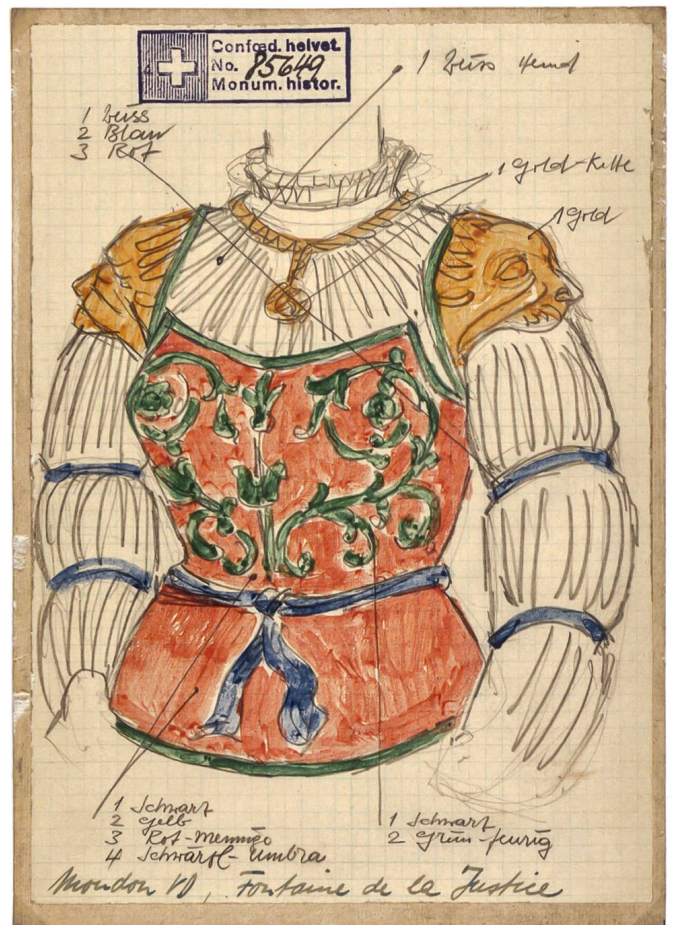 Confœd. helvet.
No. 85649
Monum. histor.
1 weiss Hemd
1 weiss
2 Blau
3 Rot
1 Gold-Kette
1 Gold
1 Schwarz
2 Gelb
3 Rot-Mennige
4 Schwärzl-Umbra
1 Schwarz
2 Grün-feurig
Moudon VD, Fontaine de la Justice